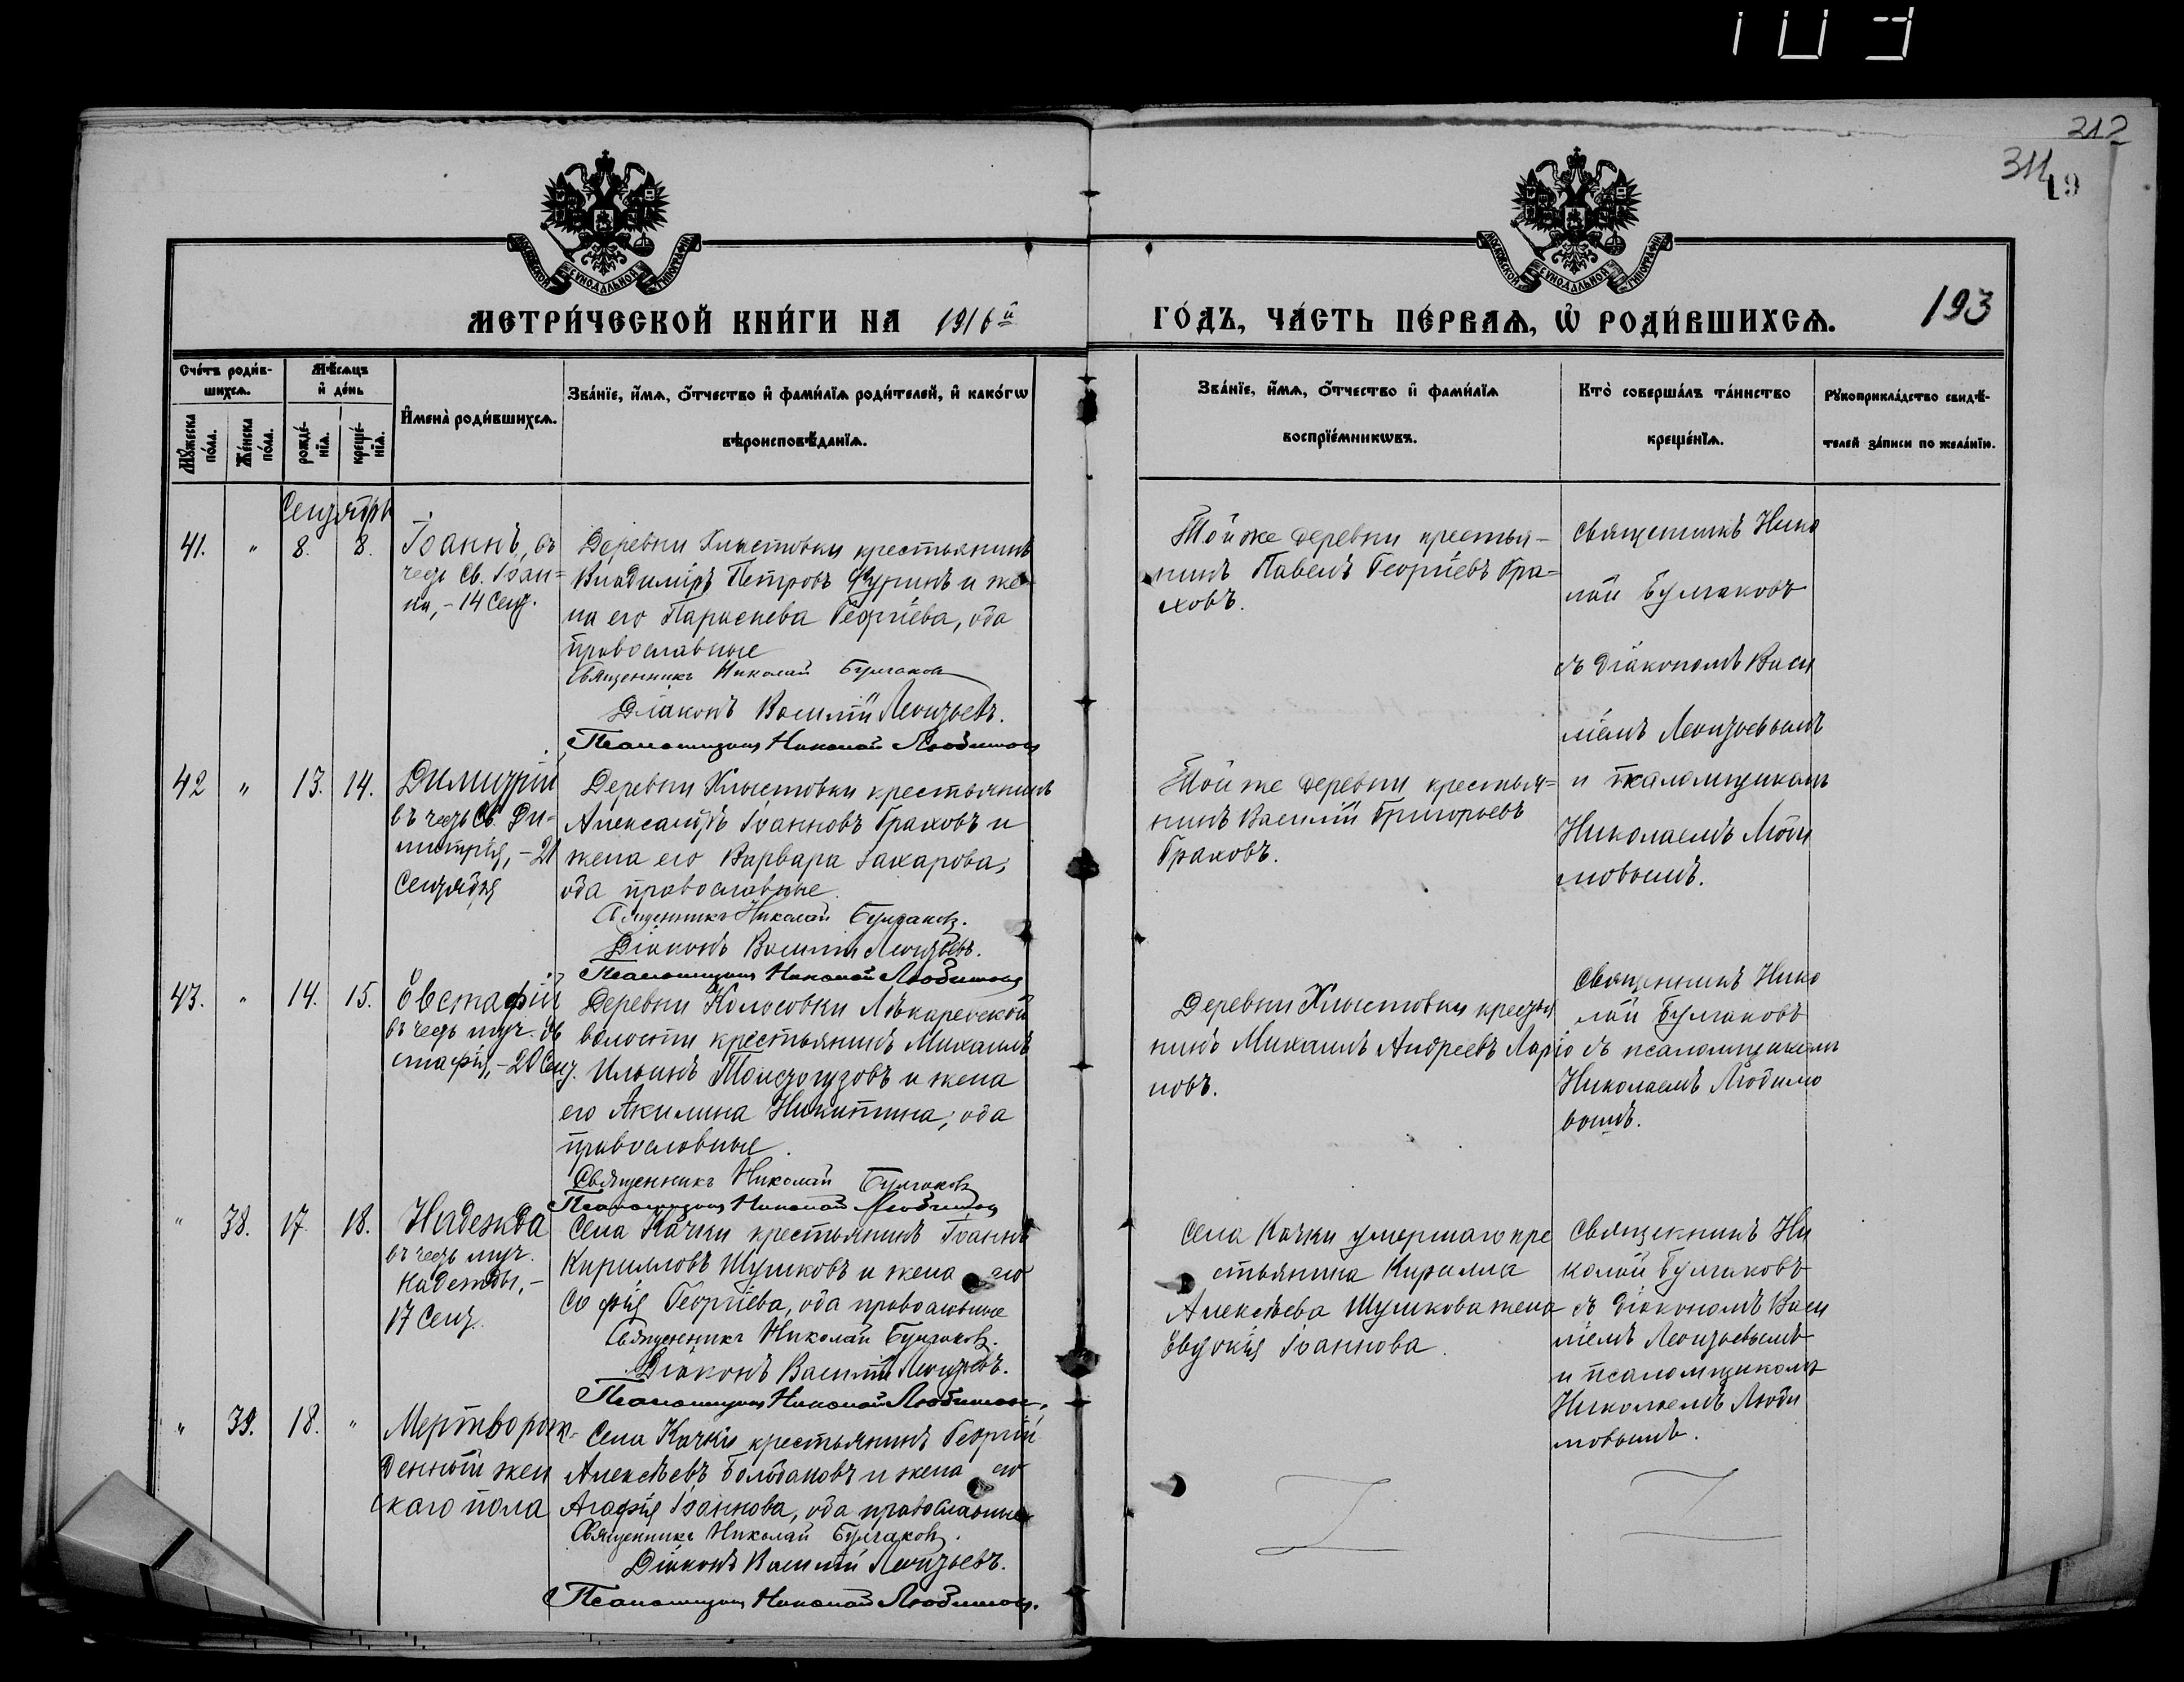 109
212
311
19
193
МОСКОВСКОЙ СѴНОДАЛЬНОЙ ТИПОГРАФІИ
МОСКОВСКОЙ СѴНОДАЛЬНОЙ ТИПОГРАФІИ
МЕТРИ́ЧЕСКОЙ КНИ́ГИ НА 1916й
ГО́ДЪ, ЧА́СТЬ ПЕ́РВАѦ, Ѡ҆ РОДИ́ВШИХСѦ.
Сче́тъ роди́в-
шихсѧ.
Мꙋ́жеска по́ла.
Же́нска по́ла.
Мѣ́сѧцъ
и҆ де́нь
рожде́-
нїѧ.
креще́-
нїѧ.
И҆мена̀ роди́вшихсѧ.
Зва́нїе, и҆́мѧ, ѻ҆́тчество и҆ фами́лїѧ роди́телей, и҆ како́гѡ
вѣроисповѣ́данїѧ.
Зва́нїе, и҆́мѧ, ѻ҆́тчество и҆ фами́лїѧ
воспрїе́мникѡвъ.
Кто̀ соверша́лъ та́инство
креще́нїѧ.
Рꙋкоприкла́дство свидѣ́-
телей за́писи по жела́нїю.
Сентябрь
41. " 8. 8.
Іоаннъ, въ
честь Св. Іоан-
на, - 14 Сент.
Деревни Хлыстовки крестьянинъ
Владиміръ Петровъ Фуринъ и же-
на его Параскева Георгіева, оба
православные
Священникъ Николай Булгаковъ
Діаконъ Василій Леонтьевъ.
Псаломщикъ Николай Любимовъ
Той же деревни крестья-
нинъ Павелъ Георгіевъ Гра-
ховъ.
Священникъ Нико
лай Булгаковъ
съ діакономъ Васи
ліемъ Леонтьевымъ
и псаломщикомъ
Николаемъ Люби
мовымъ.
42 " 13. 14.
Димитрій
въ честь Св. Ди-
митрія, - 21
Сентября
Деревни Хлыстовки крестьянинъ
Александръ Іоанновъ Граховъ и
жена его Варвара Захарова,
оба православные
Священникъ Николай Булгаковъ.
Діаконъ Василій Леонтьевъ.
Псаломщикъ Николай Любимовъ
Той же деревни крестья-
нинъ Василій Григорьевъ
Граховъ.
43. " 14. 15.
Евстафій
въ честь муч. Ев
стафія, - 20 Сент.
Деревни Колосовки
волости крестьянинъ Михаилъ
Ильинъ Толстогузовъ и жена
его Акилина Никитина, оба
православные.
Священникъ Николай Булгаковъ
Псаломщикъ Николай Любимовъ
Деревни Хлыстовки крестья
нинъ Михаилъ Андреевъ Ларіо
новъ.
Священникъ Нико
лай Булгаковъ
съ псаломщикомъ
Николаемъ Любимо
вымъ.
" 38. 17. 18.
Надежда
въ честь муч.
Надежды, -
17 Сент.
Села Качки крестьянинъ Іоаннъ
Кирилловъ Шушковъ и жена его
Софія Георгіева, оба православные
Священникъ Николай Булгаковъ.
Діаконъ Василій Леонтьевъ.
Псаломщикъ Николай Любимовъ.
Села Качки умершаго кре
стьянина Кирилла
Алексѣева Шушкова жена
Евдокія Іоаннова.
Священникъ Ни
колай Булгаковъ
съ діакономъ Васи
ліемъ Леонтьевымъ
и псаломщикомъ
Николаемъ Люби
мовымъ.
" 39. 18. "
Мертворож-
денный жен
скаго пола
Села Качки крестьянинъ Георгій
Алексѣевъ и жена его
Агафія Іоаннова, оба православные
Священникъ Николай Булгаковъ.
Діаконъ Василій Леонтьевъ.
Псаломщикъ Николай Любимовъ.